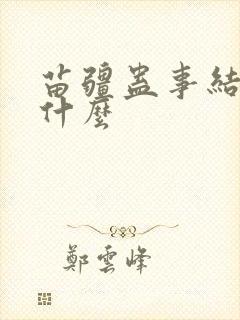 苗疆蠱事結
什麼
鄭雲峰